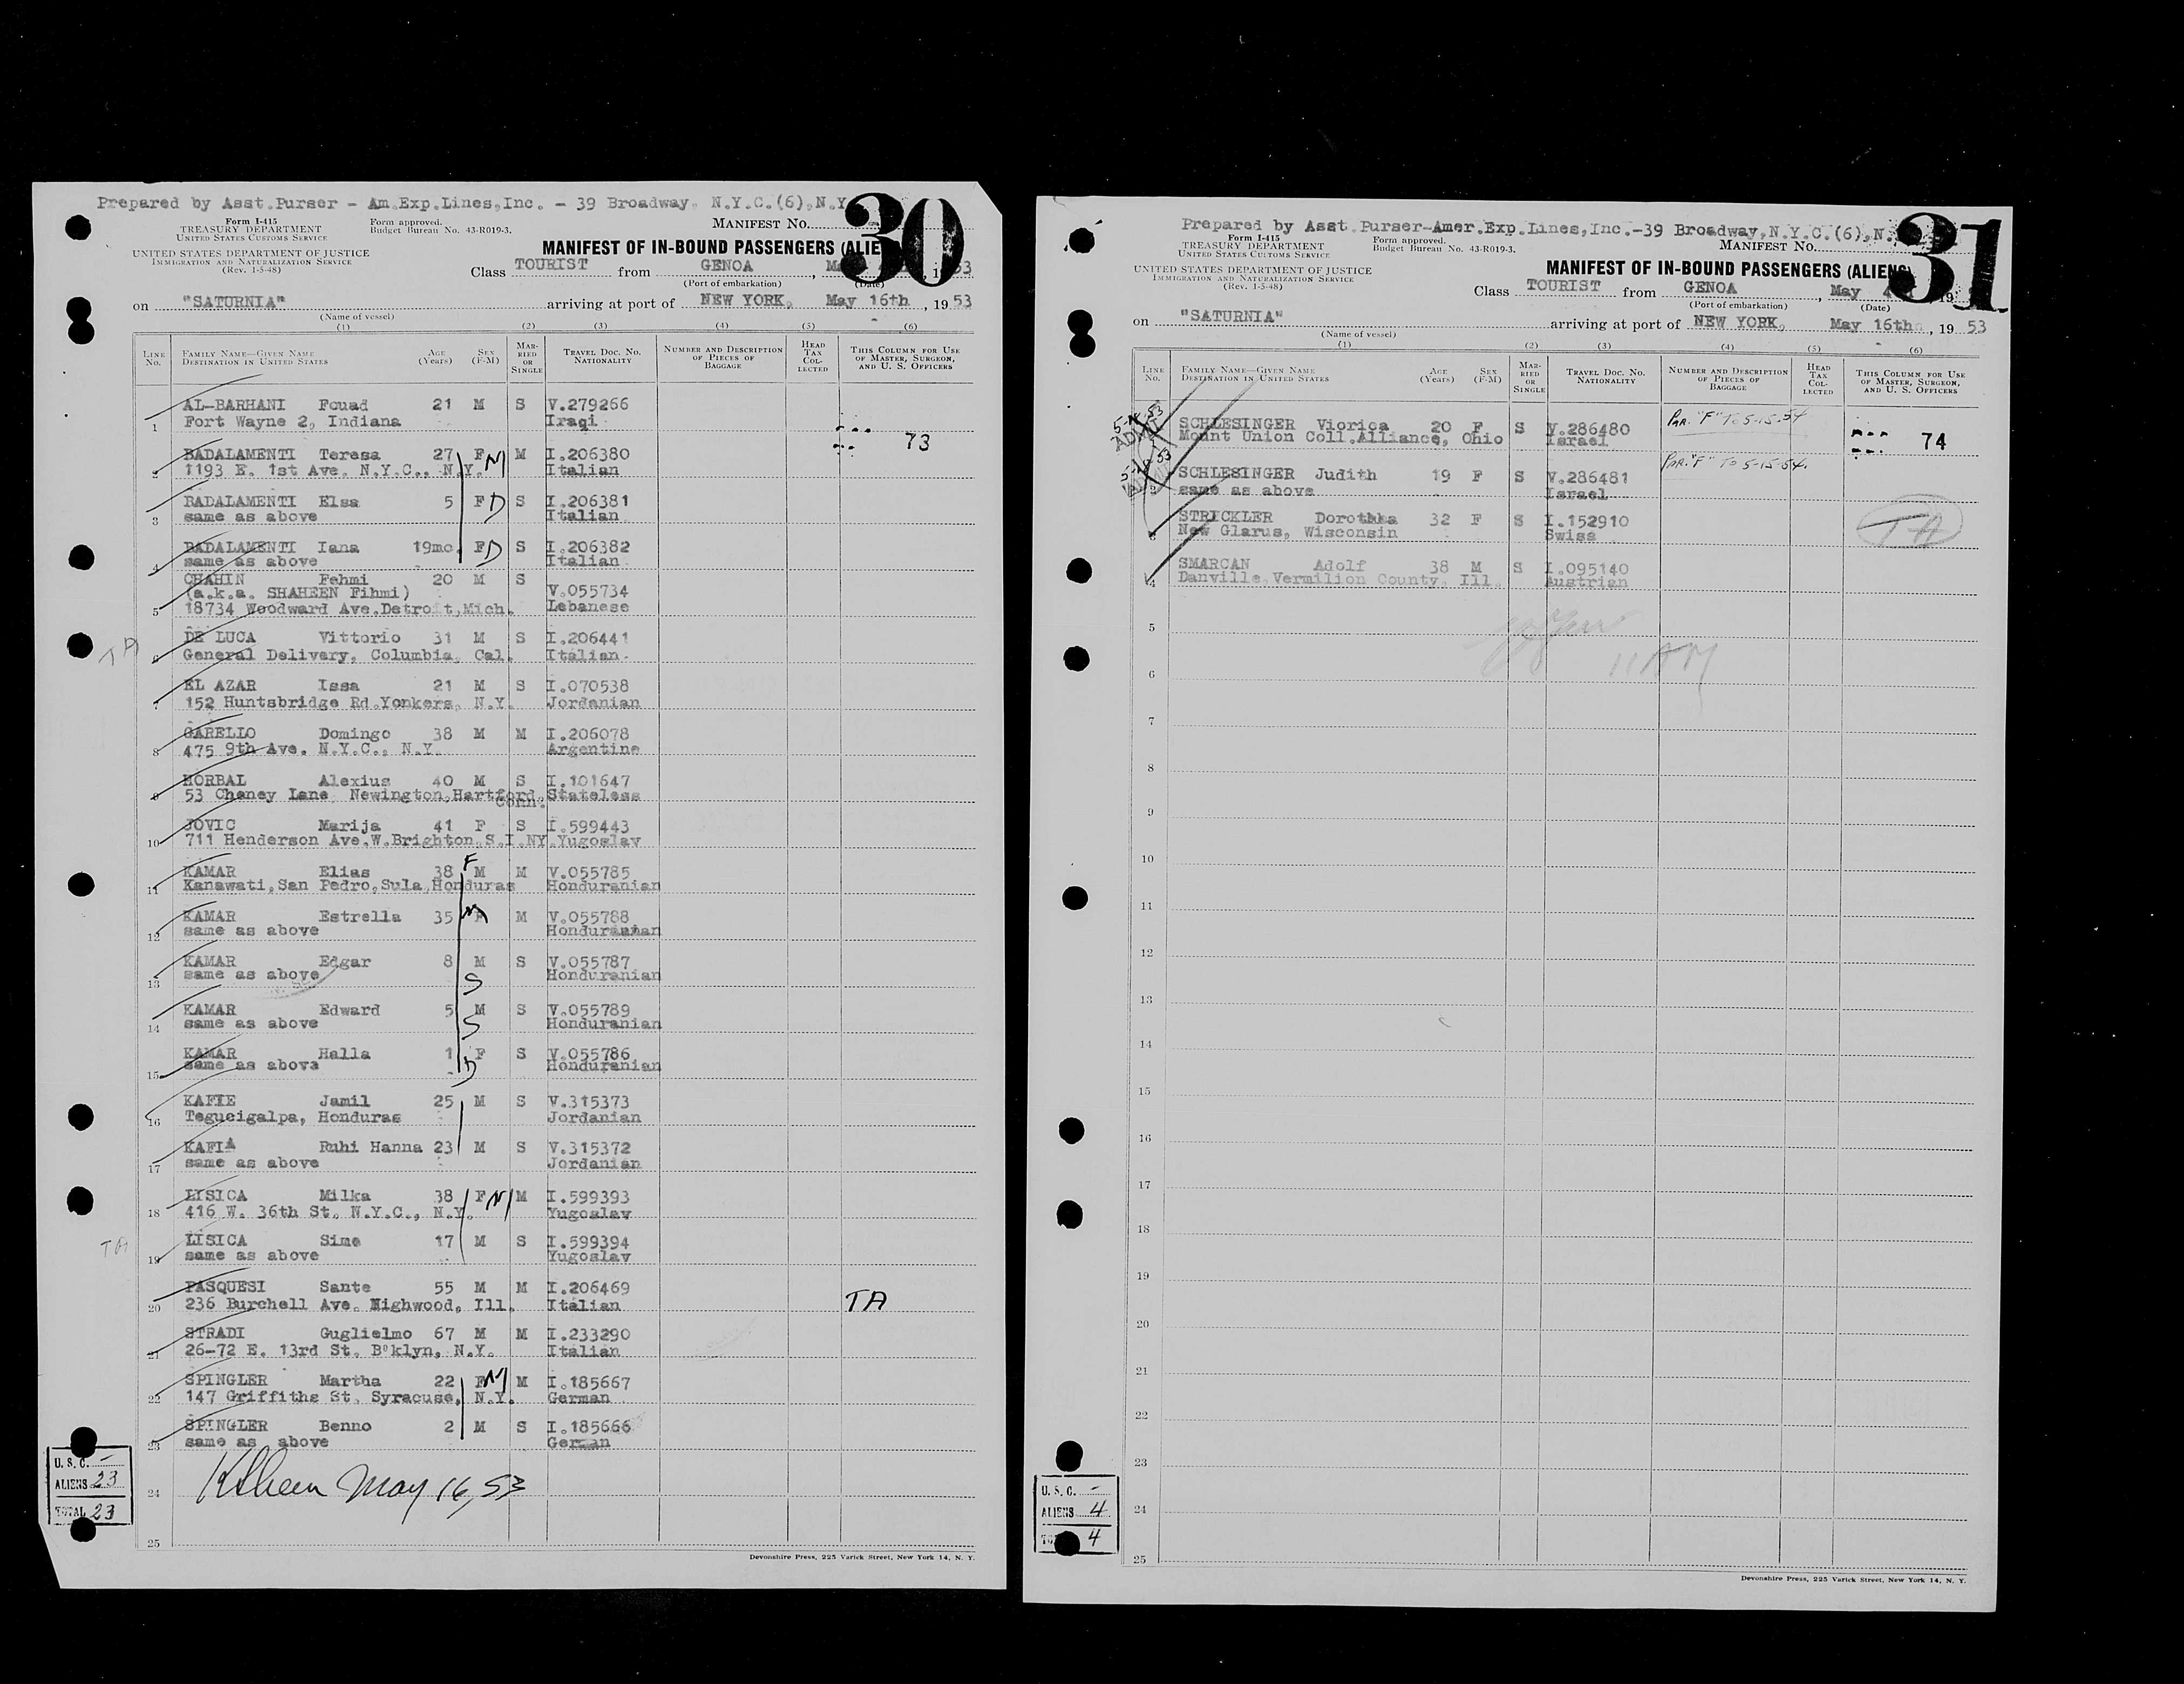 Prepared by Asst.Purser - Am.Exp.Lines,Inc. - 39 Broadway, N.Y.C.(6),N.Y
30
Form I-415
TREASURY DEPARTMENT
UNITED STATES CUSTOMS SERVICE
Form approved.
Budget Bureau No. 43-R019-3.
MANIFEST NO.
UNITED STATES DEPARTMENT OF JUSTICE
IMMIGRATION AND NATURALIZATION SERVICE
(Rev. 1-5-48)
MANIFEST OF IN-BOUND PASSENGERS (ALIE
Class TOURIST from GENOA, 1953
(Port of embarkation) (Date)
on "SATURNIA" arriving at port of NEW YORK, May 16th, 1953
(Name of vessel)
(1) (2) (3) (4) (5) (6)
LINE No. FAMILY NAME—GIVEN NAME DESTINATION IN UNITED STATES AGE (Years) SEX (F-M) MARRIED OR SINGLE TRAVEL DOC. NO. NATIONALITY NUMBER AND DESCRIPTION OF PIECES OF BAGGAGE HEAD TAX COLLECTED THIS COLUMN FOR USE OF MASTER, SURGEON, AND U. S. OFFICERS
AL-BARHANI Fouad 21 M S V.279266
1 Fort Wayne 2, Indiana Iraqi
73
BADALAMENTI Teresa 27 F M I.206380
2 1193 E. 1st Ave. N.Y.C., N.Y. Italian
BADALAMENTI Elsa 5 F D S I.206381
3 same as above Italian
BADALAMENTI Iana 19mo. F D S I.206382
4 same as above Italian
CHAHIN Fehmi 20 M S
(a.k.a. SHAHEEN Fihmi) V.055734
5 18734 Woodward Ave.Detroit,Mich. Lebanese
TA
DE LUCA Vittorio 31 M S I.206441
6 General Delivery, Columbia, Cal. Italian
EL AZAR Issa 21 M S I.070538
7 152 Huntsbridge Rd.Yonkers, N.Y. Jordanian
GARELLO Domingo 38 M M I.206078
8 475 9th Ave. N.Y.C., N.Y. Argentine
HORBAL Alexius 40 M S I.101647
9 53 Cheney Lane, Newington,Hartford, Conn. Stateless
JOVIC Marija 41 F S I.599443
10 711 Henderson Ave.W.Brighton,S.I.NY. Yugoslav
KAMAR Elias 38 F M M V.055785
11 Kanawati,San Pedro,Sula,Honduras Honduranian
KAMAR Estrella 35 M V.055788
12 same as above Honduranian
KAMAR Edgar 8 M S V.055787
13 same as above S Honduranian
KAMAR Edward 5 M S V.055789
14 same as above S Honduranian
KAMAR Halla 1 F S V.055786
15 same as above D Honduranian
KAFIE Jamil 25 M S V.315373
16 Tegucigalpa, Honduras Jordanian
KAFIA Ruhi Hanna 23 M S V.315372
17 same as above Jordanian
LISICA Milka 38 F M I.599393
18 416 W. 36th St. N.Y.C., N.Y. Yugoslav
TA
LISICA Sime 17 M S I.599394
19 same as above Yugoslav
PASQUESI Sante 55 M M I.206469
20 236 Burchell Ave. Highwood, Ill. Italian TA
STRADI Guglielmo 67 M M I.233290
21 26-72 E. 13rd St. B'klyn, N.Y. Italian
SPINGLER Martha 22 F M I.185667
22 147 Griffiths St. Syracuse, N.Y. German
SPINGLER Benno 2 M S I.185666
23 same as above German
24 May 16, 53
25
U. S. C. -
ALIENS 23
TOTAL 23
Devonshire Press, 225 Varick Street, New York 14, N. Y.
Prepared by Asst.Purser-Amer.Exp.Lines,Inc.-39 Broadway,N.Y.C.(6),N.
31
Form I-415
TREASURY DEPARTMENT
UNITED STATES CUSTOMS SERVICE
Form approved.
Budget Bureau No. 43-R019-3.
MANIFEST NO.
UNITED STATES DEPARTMENT OF JUSTICE
IMMIGRATION AND NATURALIZATION SERVICE
(Rev. 1-5-48)
MANIFEST OF IN-BOUND PASSENGERS (ALIENS)
Class TOURIST from GENOA, May 19
(Port of embarkation) (Date)
on "SATURNIA" arriving at port of NEW YORK, May 16th, 1953
(Name of vessel)
(1) (2) (3) (4) (5) (6)
LINE No. FAMILY NAME—GIVEN NAME DESTINATION IN UNITED STATES AGE (Years) SEX (F-M) MARRIED OR SINGLE TRAVEL DOC. NO. NATIONALITY NUMBER AND DESCRIPTION OF PIECES OF BAGGAGE HEAD TAX COLLECTED THIS COLUMN FOR USE OF MASTER, SURGEON, AND U. S. OFFICERS
SCHLESINGER Viorica 20 F S V.286480 Par. "F" To 5-15-54
Mount Union Coll.Alliance, Ohio Israel 74
SCHLESINGER Judith 19 F S V.286481 Par. "F" To 5-15-54.
same as above Israel
STRICKLER Dorothea 32 F S I.152910 TA
New Glarus, Wisconsin Swiss
SMARCAN Adolf 38 M S I.095140
4 Danville,Vermilion County, Ill. Austrian
5
11 AM
6
7
8
9
10
11
12
13
14
15
16
17
18
19
20
21
22
23
24
25
U. S. C. -
ALIENS 4
4
Devonshire Press, 225 Varick Street, New York 14, N. Y.